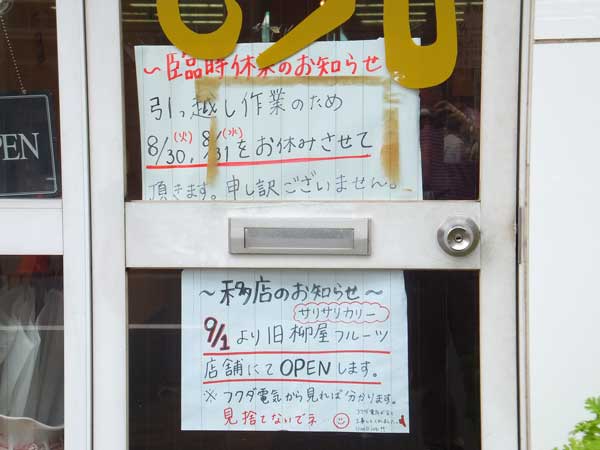 ～臨時休業のお知らせ
引っ越し作業のため
8/30(火)、8/31(水)をお休みさせて
頂きます。申し訳ございません。
PEN
～移店のお知らせ～
サリサリカリー
9/1より旧柳屋フルーツ
店舗にてOPENします。
※フクダ電気から見れば分かります。
見捨てないでネ